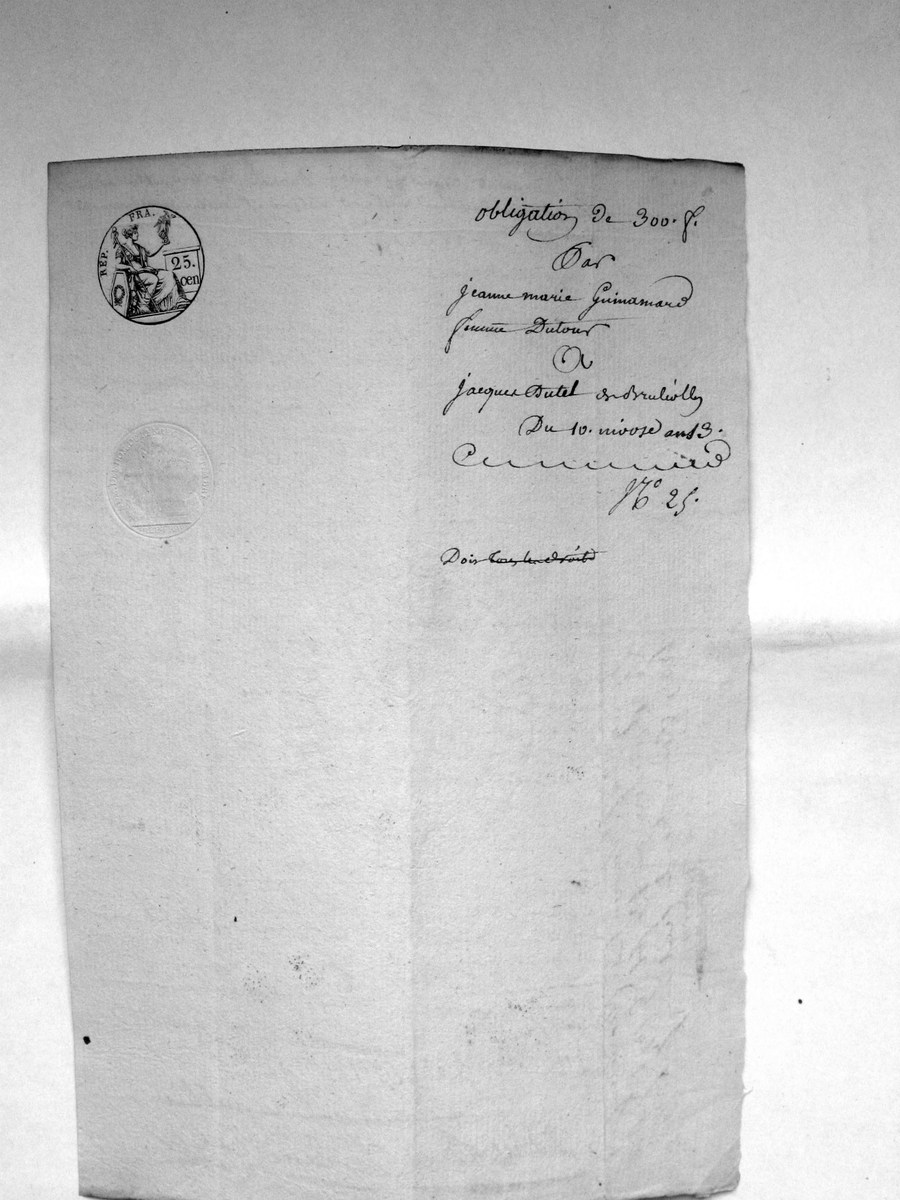 REP. FRA.
25.
cen
obligation de 300. f.
Par
jeanne marie Guinamard
femme Dutour
A
jacques Dutel de
Du 10. nivose an 13.
N.º 25.
Dois tous les droits